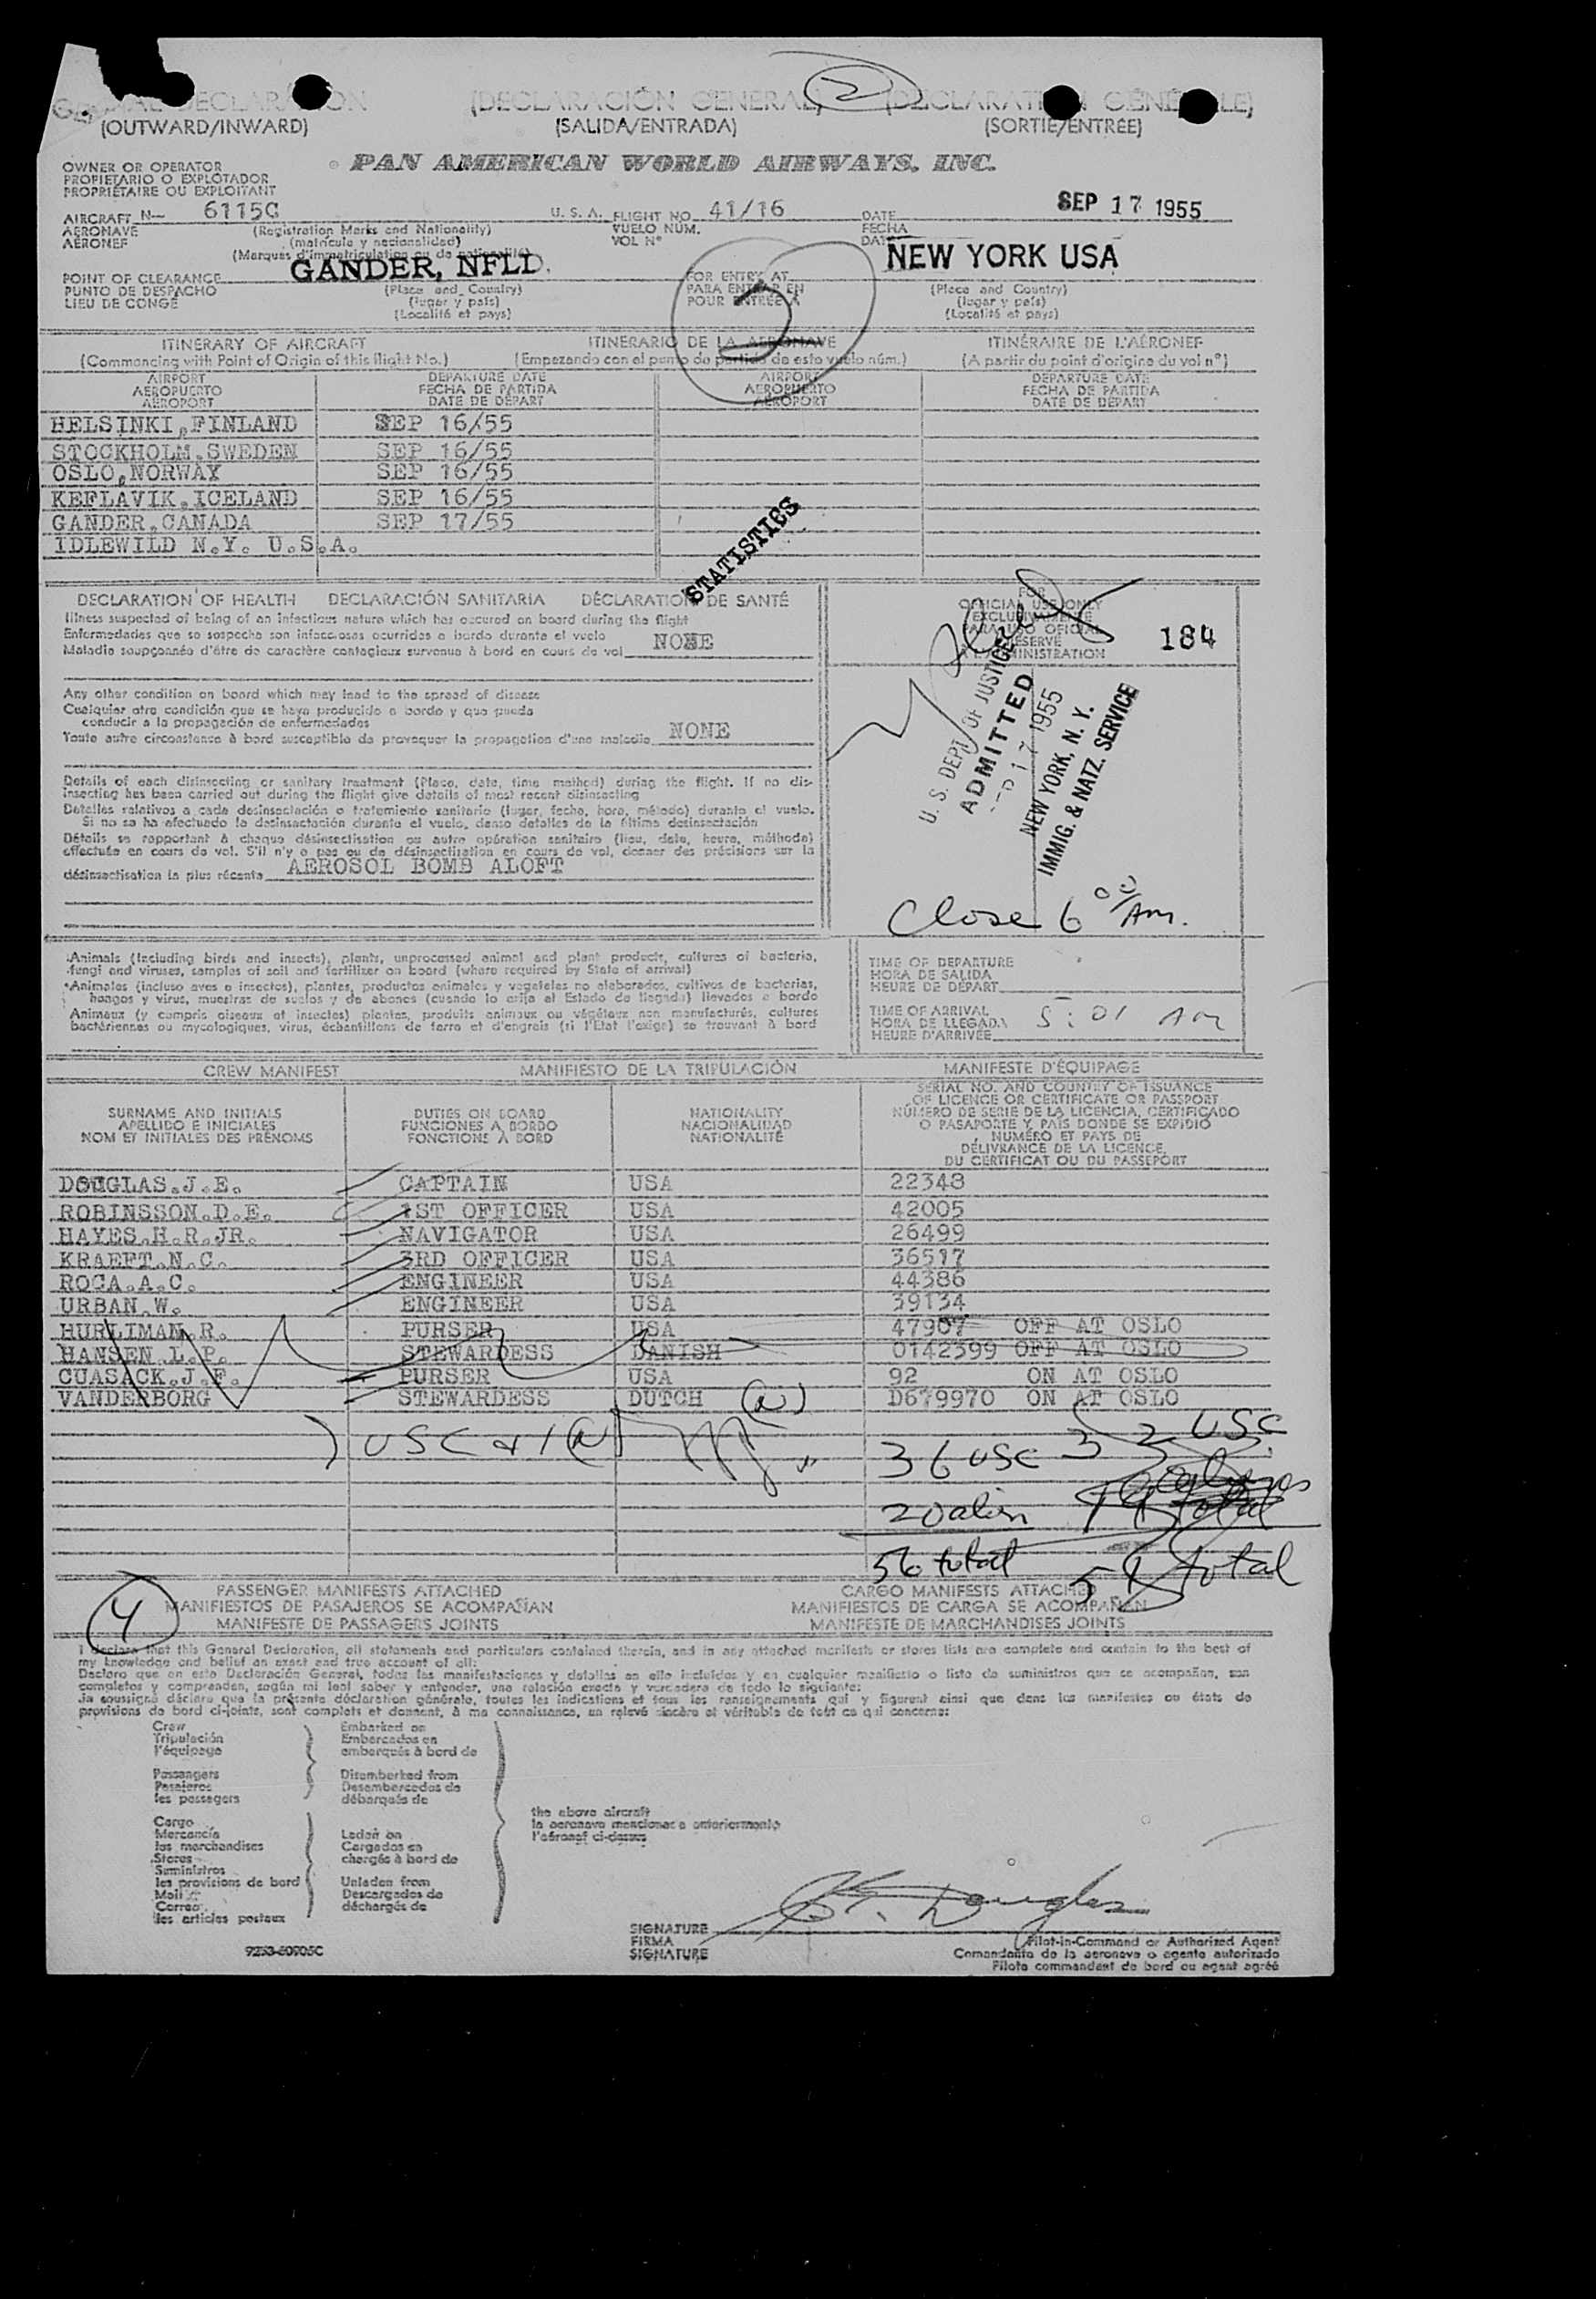 GENERAL DECLARATION (DECLARACIÓN GENERAL) 2 (DECLARATION GÉNÉRALE)
(OUTWARD/INWARD) (SALIDA/ENTRADA) (SORTIE/ENTRÉE)
OWNER OR OPERATOR PAN AMERICAN WORLD AIRWAYS, INC.
PROPIETARIO O EXPLOTADOR
PROPRIÉTAIRE OU EXPLOITANT
AIRCRAFT N— 6115C U. S. A. FLIGHT NO. 41/16 DATE SEP 17 1955
AERONAVE (Registration Marks and Nationality) VUELO NÚM. FECHA
AÉRONEF (matrícula y nacionalidad) VOL Nº DATE
(Marques d'immatriculation ou de nationalité)
POINT OF CLEARANCE GANDER, NFLD. FOR ENTRY AT NEW YORK USA
PUNTO DE DESPACHO (Place and Country) PARA ENTRAR EN (Place and Country)
LIEU DE CONGÉ (lugar y país) POUR ENTRÉE À (lugar y país)
(Localité et pays) 2 (Localité et pays)
ITINERARY OF AIRCRAFT ITINERARIO DE LA AERONAVE ITINÉRAIRE DE L'AÉRONEF
(Commencing with Point of Origin of this flight No.) (Empezando con el punto de partida de este vuelo núm.) (A partir du point d'origine du vol nº)
AIRPORT DEPARTURE DATE AIRPORT DEPARTURE DATE
AEROPUERTO FECHA DE PARTIDA AEROPUERTO FECHA DE PARTIDA
AÉROPORT DATE DE DÉPART AÉROPORT DATE DE DÉPART
HELSINKI,FINLAND SEP 16/55
STOCKHOLM,SWEDEN SEP 16/55
OSLO,NORWAY SEP 16/55
KEFLAVIK.ICELAND SEP 16/55
GANDER.CANADA SEP 17/55
IDLEWILD N.Y. U.S.A.
STATISTICS
DECLARATION OF HEALTH DECLARACIÓN SANITARIA DÉCLARATION DE SANTÉ
Illness suspected of being of an infectious nature which has occured on board during the flight
Enfermedades que se sospecha son infecciosas ocurridas a bordo durante el vuelo
Maladie soupçonnée d'être de caractère contagieux survenue à bord en cours de vol NONE
Any other condition on board which may lead to the spread of disease
Cualquier otra condición que se haya producido a bordo y que pueda
conducir a la propagación de enfermedades
Toute autre circonstance à bord susceptible de provoquer la propagation d'une maladie NONE
Details of each disinsecting or sanitary treatment (Place, date, time method) during the flight. If no dis-
insecting has been carried out during the flight give details of most recent disinsecting
Detalles relativos a cada desinsectación o tratamiento sanitario (lugar, fecha, hora, método) durante el vuelo.
Si no se ha efectuado la desinsectación durante el vuelo, dense detalles de la última desinsectación
Détails se rapportant à chaque désinsectisation ou autre opération sanitaire (lieu, date, heure, méthode)
effectuée en cours de vol. S'il n'y a pas eu de désinsectisation en cours de vol, donner des précisions sur la
désinsectisation la plus récente AEROSOL BOMB ALOFT
FOR
OFFICIAL USE ONLY
EXCLUSIVAMENTE
PARA USO OFICIAL
RÉSERVÉ
À L'ADMINISTRATION
184
U. S. DEPT. OF JUSTICE
ADMITTED
SEP 17 1955
NEW YORK, N. Y.
IMMIG. & NATZ. SERVICE
Close 6 00/Am.
Animals (Including birds and insects), plants, unprocessed animal and plant products, cultures of bacteria,
fungi and viruses, samples of soil and fertilizer on board (where required by State of arrival)
Animales (incluso aves e insectos), plantas, productos animales y vegetales no elaborados, cultivos de bacterias,
hongos y virus, muestras de suelos y de abonos (cuando lo exija el Estado de llegada) llevados a bordo
Animaux (y compris oiseaux et insectes) plantes, produits animaux ou végétaux non manufacturés, cultures
bactériennes ou mycologiques, virus, échantillons de terre et d'engrais (si l'Etat l'exige) se trouvant à bord
TIME OF DEPARTURE
HORA DE SALIDA
HEURE DE DÉPART
TIME OF ARRIVAL
HORA DE LLEGADA 5:01 AM
HEURE D'ARRIVÉE
CREW MANIFEST MANIFIESTO DE LA TRIPULACIÓN MANIFESTE D'ÉQUIPAGE
SURNAME AND INITIALS DUTIES ON BOARD NATIONALITY SERIAL NO. AND COUNTRY OF ISSUANCE
APELLIDO E INICIALES FUNCIONES A BORDO NACIONALIDAD OF LICENCE OR CERTIFICATE OR PASSPORT
NOM ET INITIALES DES PRÉNOMS FONCTIONS À BORD NATIONALITÉ NÚMERO DE SERIE DE LA LICENCIA, CERTIFICADO
O PASAPORTE Y PAÍS DONDE SE EXPIDIÓ
NUMÉRO ET PAYS DE
DÉLIVRANCE DE LA LICENCE,
DU CERTIFICAT OU DU PASSEPORT
DOUGLAS.J.E. CAPTAIN USA 22348
ROBINSSON.D.E. 1ST OFFICER USA 42005
HAYES.H.R.JR. NAVIGATOR USA 26499
KRAEFT.N.C. 3RD OFFICER USA 36517
ROCA.A.C. ENGINEER USA 44386
URBAN.W. ENGINEER USA 39134
HURLIMAN.R. PURSER USA 47907 OFF AT OSLO
HANSEN.L.P. STEWARDESS DANISH 0142399 OFF AT OSLO
CUASACK.J.F. PURSER USA 92 ON AT OSLO
VANDERBORG STEWARDESS DUTCH D679970 ON AT OSLO
USC
36 USC
20 alien
56 total total
4
PASSENGER MANIFESTS ATTACHED CARGO MANIFESTS ATTACHED
MANIFIESTOS DE PASAJEROS SE ACOMPAÑAN MANIFIESTOS DE CARGA SE ACOMPAÑAN
MANIFESTE DE PASSAGERS JOINTS MANIFESTE DE MARCHANDISES JOINTS
I declare that this General Declaration, all statements and particulars contained therein, and in any attached manifests or stores lists are complete and contain to the best of
my knowledge and belief an exact and true account of all:
Declaro que en esta Declaración General, todas las manifestaciones y detalles en ella incluidos y en cualquier manifiesto o lista de suministros que se acompañan, son
completos y comprenden, según mi leal saber y entender, una relación exacta y verdadera de todo lo siguiente:
Je soussigné déclare que la présente déclaration générale, toutes les indications et tous les renseignements qui y figurent ainsi que dans les manifestes ou états de
provisions de bord ci-joints, sont complets et donnent, à ma connaissance, un relevé sincère et véritable de tout ce qui concerne:
Crew Embarked on
Tripulación Embarcados en
l'équipage embarqués à bord de
Passengers Disembarked from
Pasajeros Desembarcados de
les passagers débarqués de
the above aircraft
la aeronave mencionada anteriormente
l'aéronef ci-dessus
Cargo
Mercancía Laden on
les marchandises Cargados en
Stores chargés à bord de
Suministros
les provisions de bord Unladen from
Mail Descargados de
Correo déchargés de
les articles postaux
Douglas
SIGNATURE Pilot-in-Command or Authorized Agent
FIRMA Comandante de la aeronave o agente autorizado
SIGNATURE Pilote commandant de bord ou agent agréé
9253-60905C